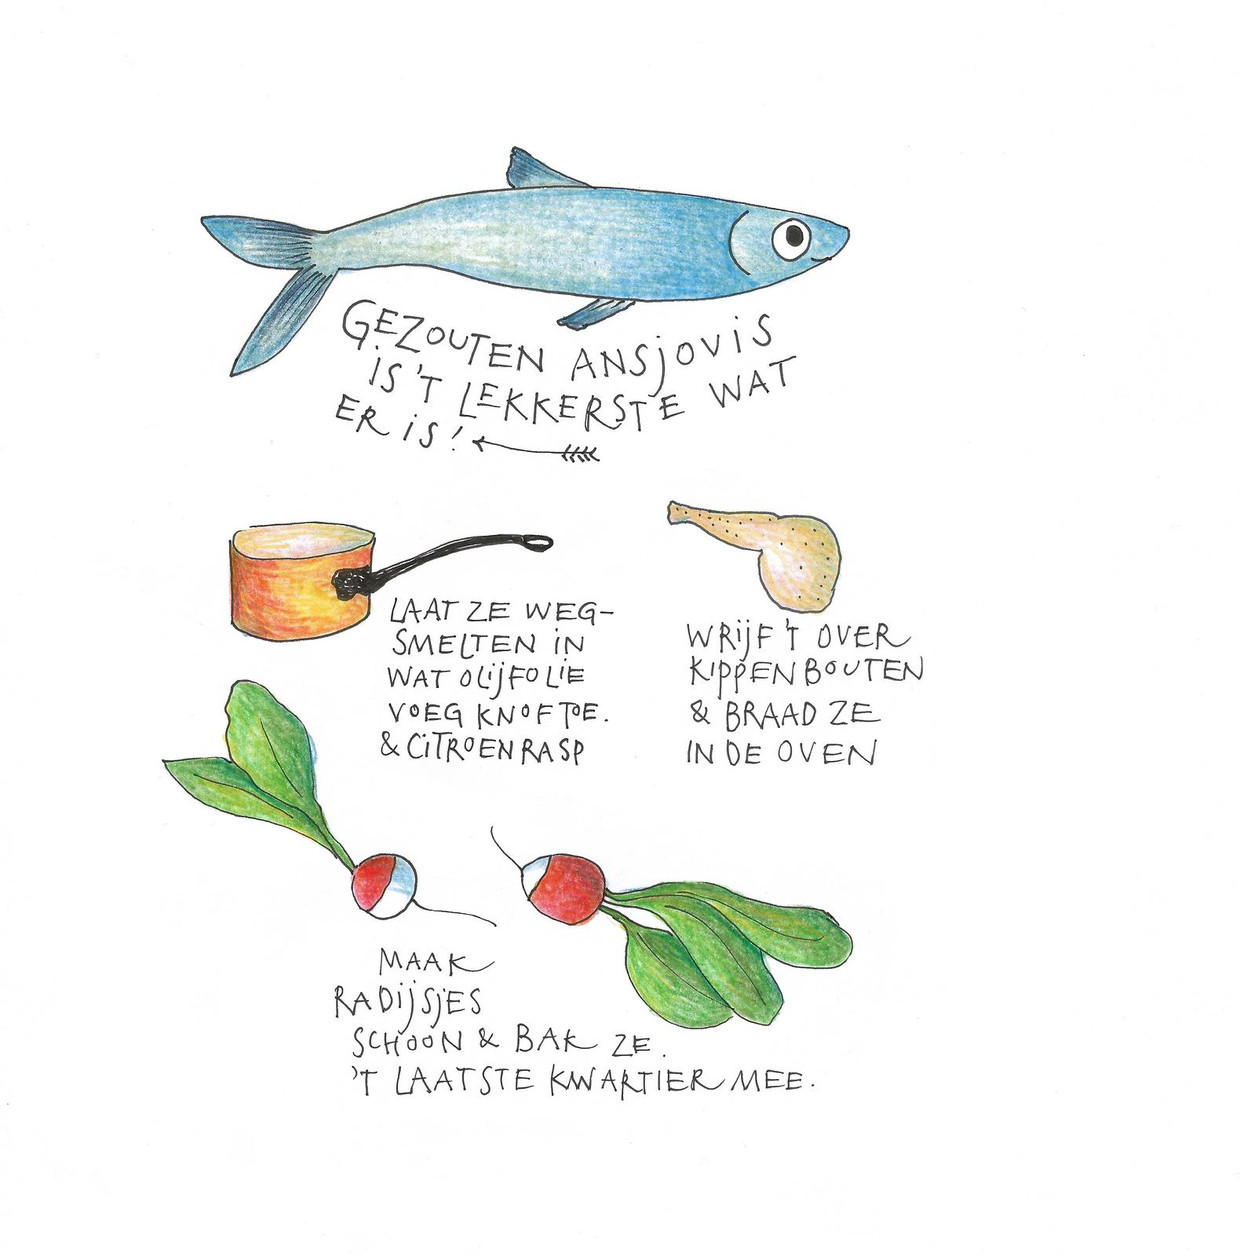 GEZOUTEN ANSJOVIS
IS 'T LEKKERSTE WAT
ER IS!
LAAT ZE WEG-
SMELTEN IN
WAT OLIJFOLIE
VOEG KNOF TOE.
& CITROENRASP
WRIJF 'T OVER
KIPPENBOUTEN
& BRAAD ZE
IN DE OVEN
MAAK
RADIJSJES
SCHOON & BAK ZE.
'T LAATSTE KWARTIER MEE.